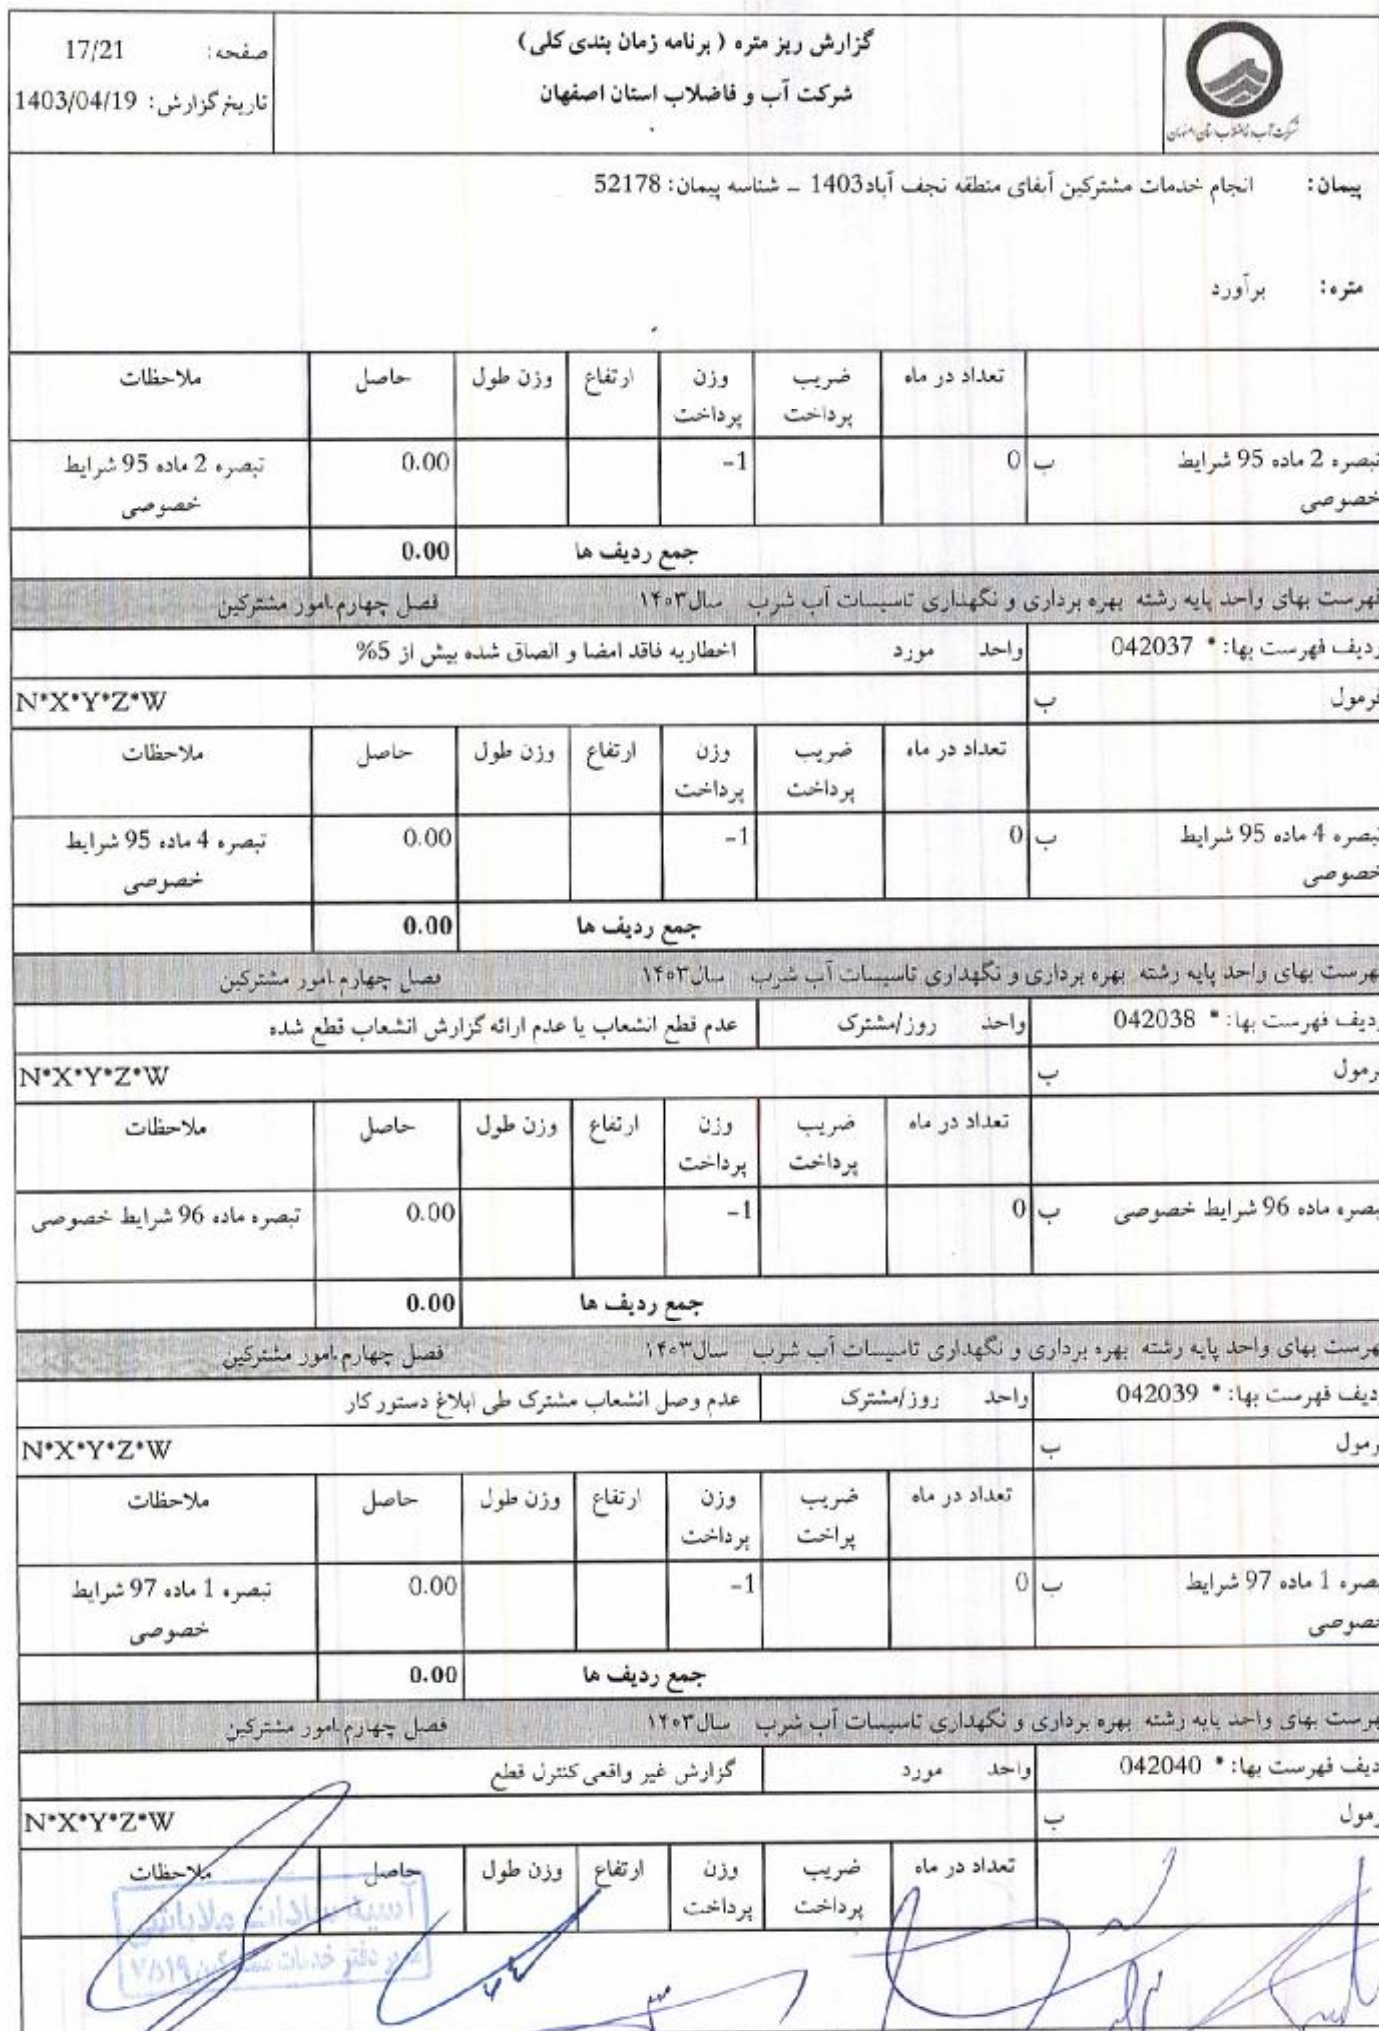 گزارش ریز متره ( برنامه زمان بندی کلی)
شرکت آب و فاضلاب استان اصفهان
صفحه: 17/21
تاریخ گزارش: 1403/04/19
شرکت آب و فاضلاب استان اصفهان
پیمان: انجام خدمات مشترکین آبفای منطقه نجف آباد1403 ـ شناسه پیمان: 52178
متره: برآورد
تعداد در ماه ضریب پرداخت وزن پرداخت ارتفاع وزن طول حاصل ملاحظات
تبصره 2 ماده 95 شرایط خصوصی ب 0 -1 0.00 تبصره 2 ماده 95 شرایط خصوصی
جمع ردیف ها 0.00
فهرست بهای واحد پایه رشته بهره برداری و نگهداری تاسیسات آب شرب سال۱۴۰۳ فصل چهارم.امور مشترکین
ردیف فهرست بها: * 042037 واحد مورد اخطاریه فاقد امضا و الصاق شده بیش از 5%
فرمول ب N*X*Y*Z*W
تعداد در ماه ضریب پرداخت وزن پرداخت ارتفاع وزن طول حاصل ملاحظات
تبصره 4 ماده 95 شرایط خصوصی ب 0 -1 0.00 تبصره 4 ماده 95 شرایط خصوصی
جمع ردیف ها 0.00
هرست بهای واحد پایه رشته بهره برداری و نگهداری تاسیسات آب شرب سال۱۴۰۳ فصل چهارم.امور مشترکین
ردیف فهرست بها: * 042038 واحد روز/مشترک عدم قطع انشعاب یا عدم ارائه گزارش انشعاب قطع شده
رمول ب N*X*Y*Z*W
تعداد در ماه ضریب پرداخت وزن پرداخت ارتفاع وزن طول حاصل ملاحظات
بصره ماده 96 شرایط خصوصی ب 0 -1 0.00 تبصره ماده 96 شرایط خصوصی
جمع ردیف ها 0.00
هرست بهای واحد پایه رشته بهره برداری و نگهداری تاسیسات آب شرب سال۱۴۰۳ فصل چهارم.امور مشترکین
دیف فهرست بها: * 042039 واحد روز/مشترک عدم وصل انشعاب مشترک طی ابلاغ دستور کار
رمول ب N*X*Y*Z*W
تعداد در ماه ضریب پراخت وزن پرداخت ارتفاع وزن طول حاصل ملاحظات
بصره 1 ماده 97 شرایط خصوصی ب 0 -1 0.00 تبصره 1 ماده 97 شرایط خصوصی
جمع ردیف ها 0.00
هرست بهای واحد پایه رشته بهره برداری و نگهداری تاسیسات آب شرب سال۱۴۰۳ فصل چهارم.امور مشترکین
دیف فهرست بها: * 042040 واحد مورد گزارش غیر واقعی کنترل قطع
رمول ب N*X*Y*Z*W
تعداد در ماه ضریب پرداخت وزن پرداخت ارتفاع وزن طول حاصل ملاحظات
آسیه سادات ملاباشی
مدیر دفتر خدمات مشترکین